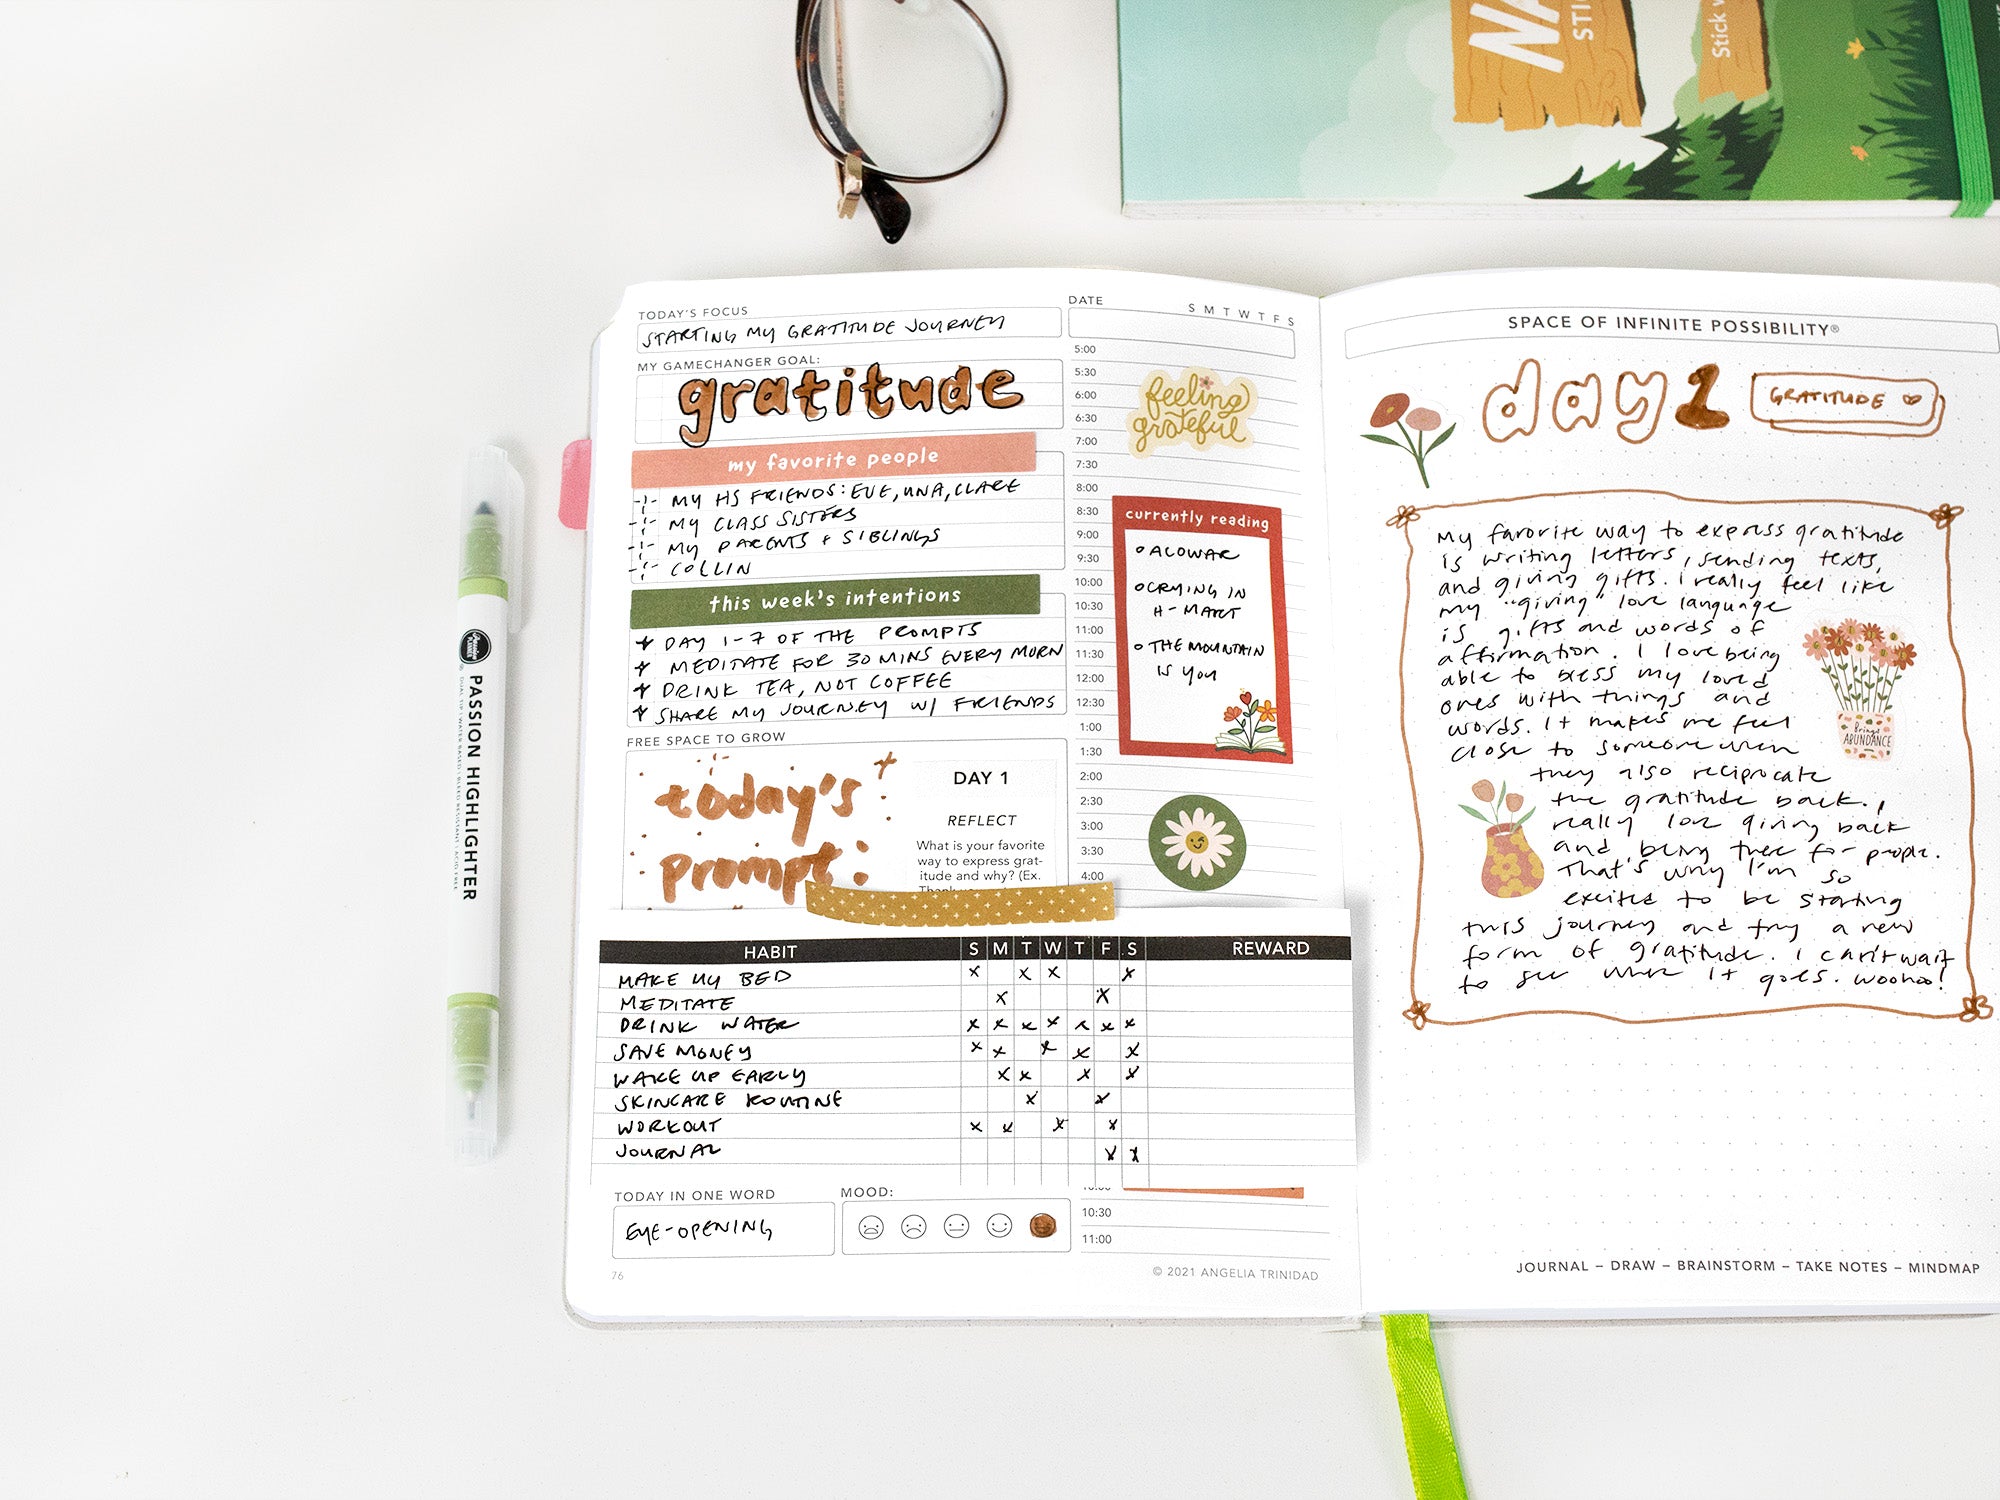 NA
STI
Stick w
PASSION HIGHLIGHTER
TODAY'S FOCUS
STARTING MY GRATITUDE JOURNEY
MY GAMECHANGER GOAL:
gratitude
my favorite people
MY HS FRIENDS: EVE, UNA, CLARE
MY CLASS SISTERS
MY PARENTS + SIBLINGS
COLLIN
this week's intentions
DAY 1-7 OF THE PROMPTS
MEDITATE FOR 30 MINS EVERY MORN
DRINK TEA, NOT COFFEE
SHARE MY JOURNEY W/ FRIENDS
FREE SPACE TO GROW
today's
prompt:
DAY 1
REFLECT
What is your favorite
way to express grat-
itude and why? (Ex.
DATE
S M T W T F S
5:00
5:30
6:00
6:30
7:00
7:30
8:00
8:30
9:00
9:30
10:00
10:30
11:00
11:30
12:00
12:30
1:00
1:30
2:00
2:30
3:00
3:30
4:00
feeling
grateful
currently reading
ACOWAR
CRYING IN
H-MART
THE MOUNTAIN
IS YOU
HABIT S M T W T F S REWARD
MAKE MY BED x x x x
MEDITATE x x
DRINK WATER x x x x x x x
SAVE MONEY x x x x x
WAKE UP EARLY x x x x
SKINCARE ROUTINE x x
WORKOUT x x x x
JOURNAL x x
TODAY IN ONE WORD
EYE-OPENING
MOOD:
10:30
11:00
76
© 2021 ANGELIA TRINIDAD
SPACE OF INFINITE POSSIBILITY®
day 1
GRATITUDE
My favorite way to express gratitude
is writing letters, sending texts,
and giving gifts. I really feel like
my "giving" love language
is gifts and words of
affirmation. I love being
able to bless my loved
ones with things and
words. It makes me feel
close to someone when
they also reciprocate
the gratitude back. I
really love giving back
and being there for people.
That's why I'm so
excited to be starting
this journey and try a new
form of gratitude. I can't wait
to see where it goes. woohoo!
Bring
ABUNDANCE
JOURNAL – DRAW – BRAINSTORM – TAKE NOTES – MINDMAP